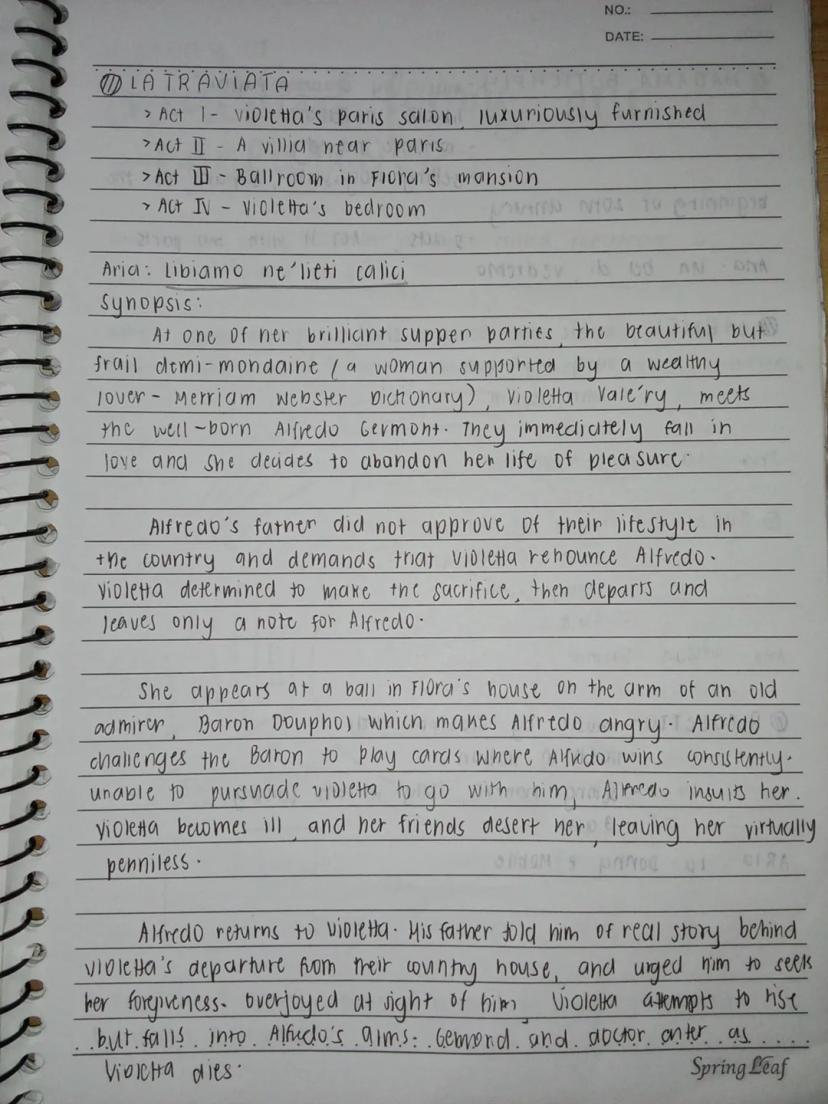 NO.:
DATE:
⑪ LA TRAVIATA
> Act I - Violetta's paris salon, luxuriously furnished
> Act II - A villia near paris
> Act III - Ballroom in Flora's mansion
> Act IV - Violetta's bedroom
Aria: Libiamo ne'lieti calici
Synopsis:
At one of her brilliant supper parties, the beautiful but
frail demi-mondaine (a woman supported by a wealthy
lover - Merriam Webster Dictionary), Violetta Vale'ry, meets
the well-born Alfredo Germont. They immediately fall in
love and she decides to abandon her life of pleasure.
Alfredo's father did not approve of their lifestyle in
the country and demands that Violetta renounce Alfredo.
Violetta determined to make the sacrifice, then departs and
leaves only a note for Alfredo.
She appears at a ball in Flora's house on the arm of an old
admirer, Baron Douphol which makes Alfredo angry. Alfredo
challenges the Baron to play cards where Alfredo wins consistently.
unable to pursuade violetta to go with him, Alfredo insults her.
Violetta becomes ill, and her friends desert her, leaving her virtually
penniless.
Alfredo returns to Violetta. His father told him of real story behind
violetta's departure from their country house, and urged him to seek
her forgiveness. overjoyed at sight of him, Violetta attempts to rise
but falls into Alfredo's arms. Gemond and doctor enter as
Violetta dies.
Spring Leaf